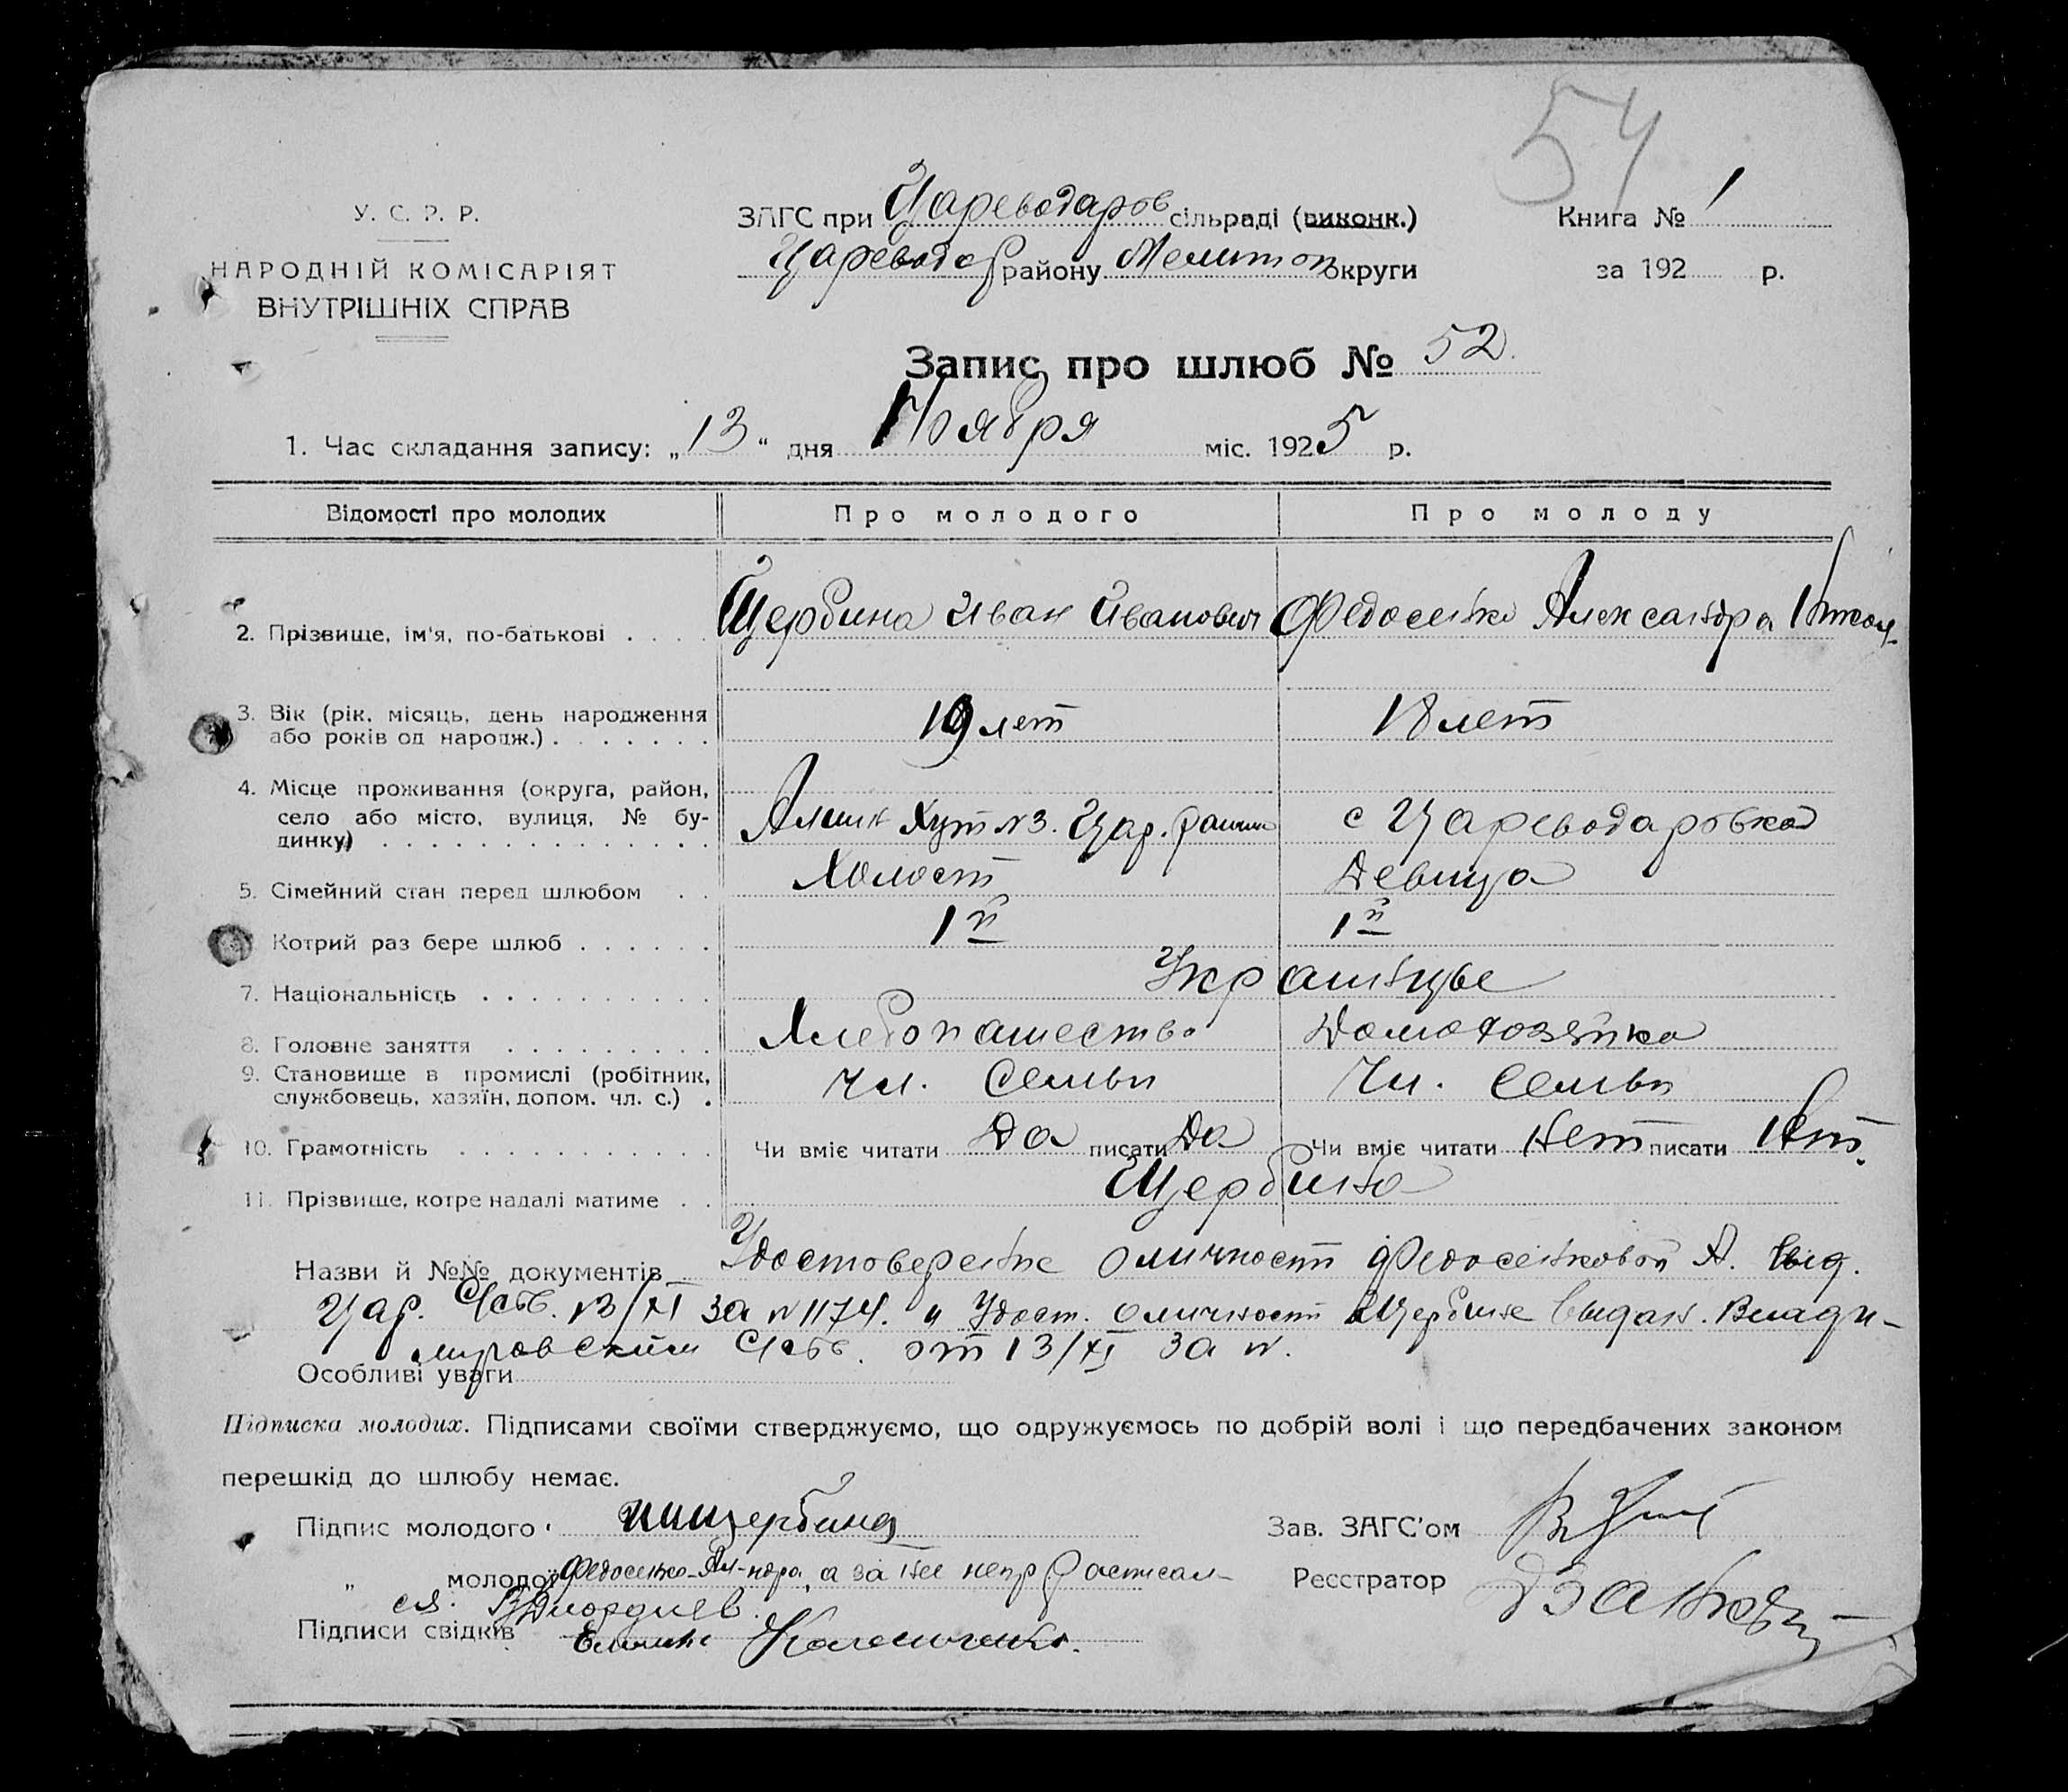 54
У. С. Р. Р.
НАРОДНІЙ КОМІСАРІЯТ
ВНУТРІШНІХ СПРАВ
ЗАГС при Цареводаров сільраді (виконк.)
Цареводар району Мелитоп округи
Книга № 1
за 192 р.
Запис про шлюб № 52.
1. Час складання запису: „13" дня Ноября міс. 1925 р.
Відомості про молодих Про молодого Про молоду
2. Прізвище, ім'я, по-батькові . . . . Щербина Иван Иванович Федосенко Александра
3. Вік (рік, місяць, день народження
або років од народж.) . . . . . . . 19 лет 18 лет
4. Місце проживання (округа, район,
село або місто, вулиця, № бу-
динку) . . . . . . . . . . . . . . Хут №3. Цар. с Цареводаровка
5. Сімейний стан перед шлюбом . . Холост Девица
Котрий раз бере шлюб . . . . . . 1й 1й
7. Національність . . . . . . . . . . Украинцы
8. Головне заняття . . . . . . . . . Хлебопашество Домохозяйка
9. Становище в промислі (робітник,
службовець, хазяїн, допом. чл. с.) . Чл. Семьи Чл. Семьи
10. Грамотність . . . . . . . . . . . Чи вміє читати Да писати Да Чи вміє читати Нет писати Нет.
11. Прізвище, котре надалі матиме . . Щербина
Назви й №№ документів Удостоверение о личност Федосенковой А. выд.
Цар. 13/XI за № 1174. и Удост. о личност Щербине выдан. Влади-
мировским от 13/XI за №.
Особливі уваги
Підписка молодих. Підписами своїми стверджуємо, що одружуємось по добрій волі і що передбачених законом
перешкід до шлюбу немає.
Підпис молодого Щербина
„ молодої Федосенко Ал-ндра, а за нее негр расписал-
ся.
Підписи свідків
Зав. ЗАГС'ом
Реєстратор